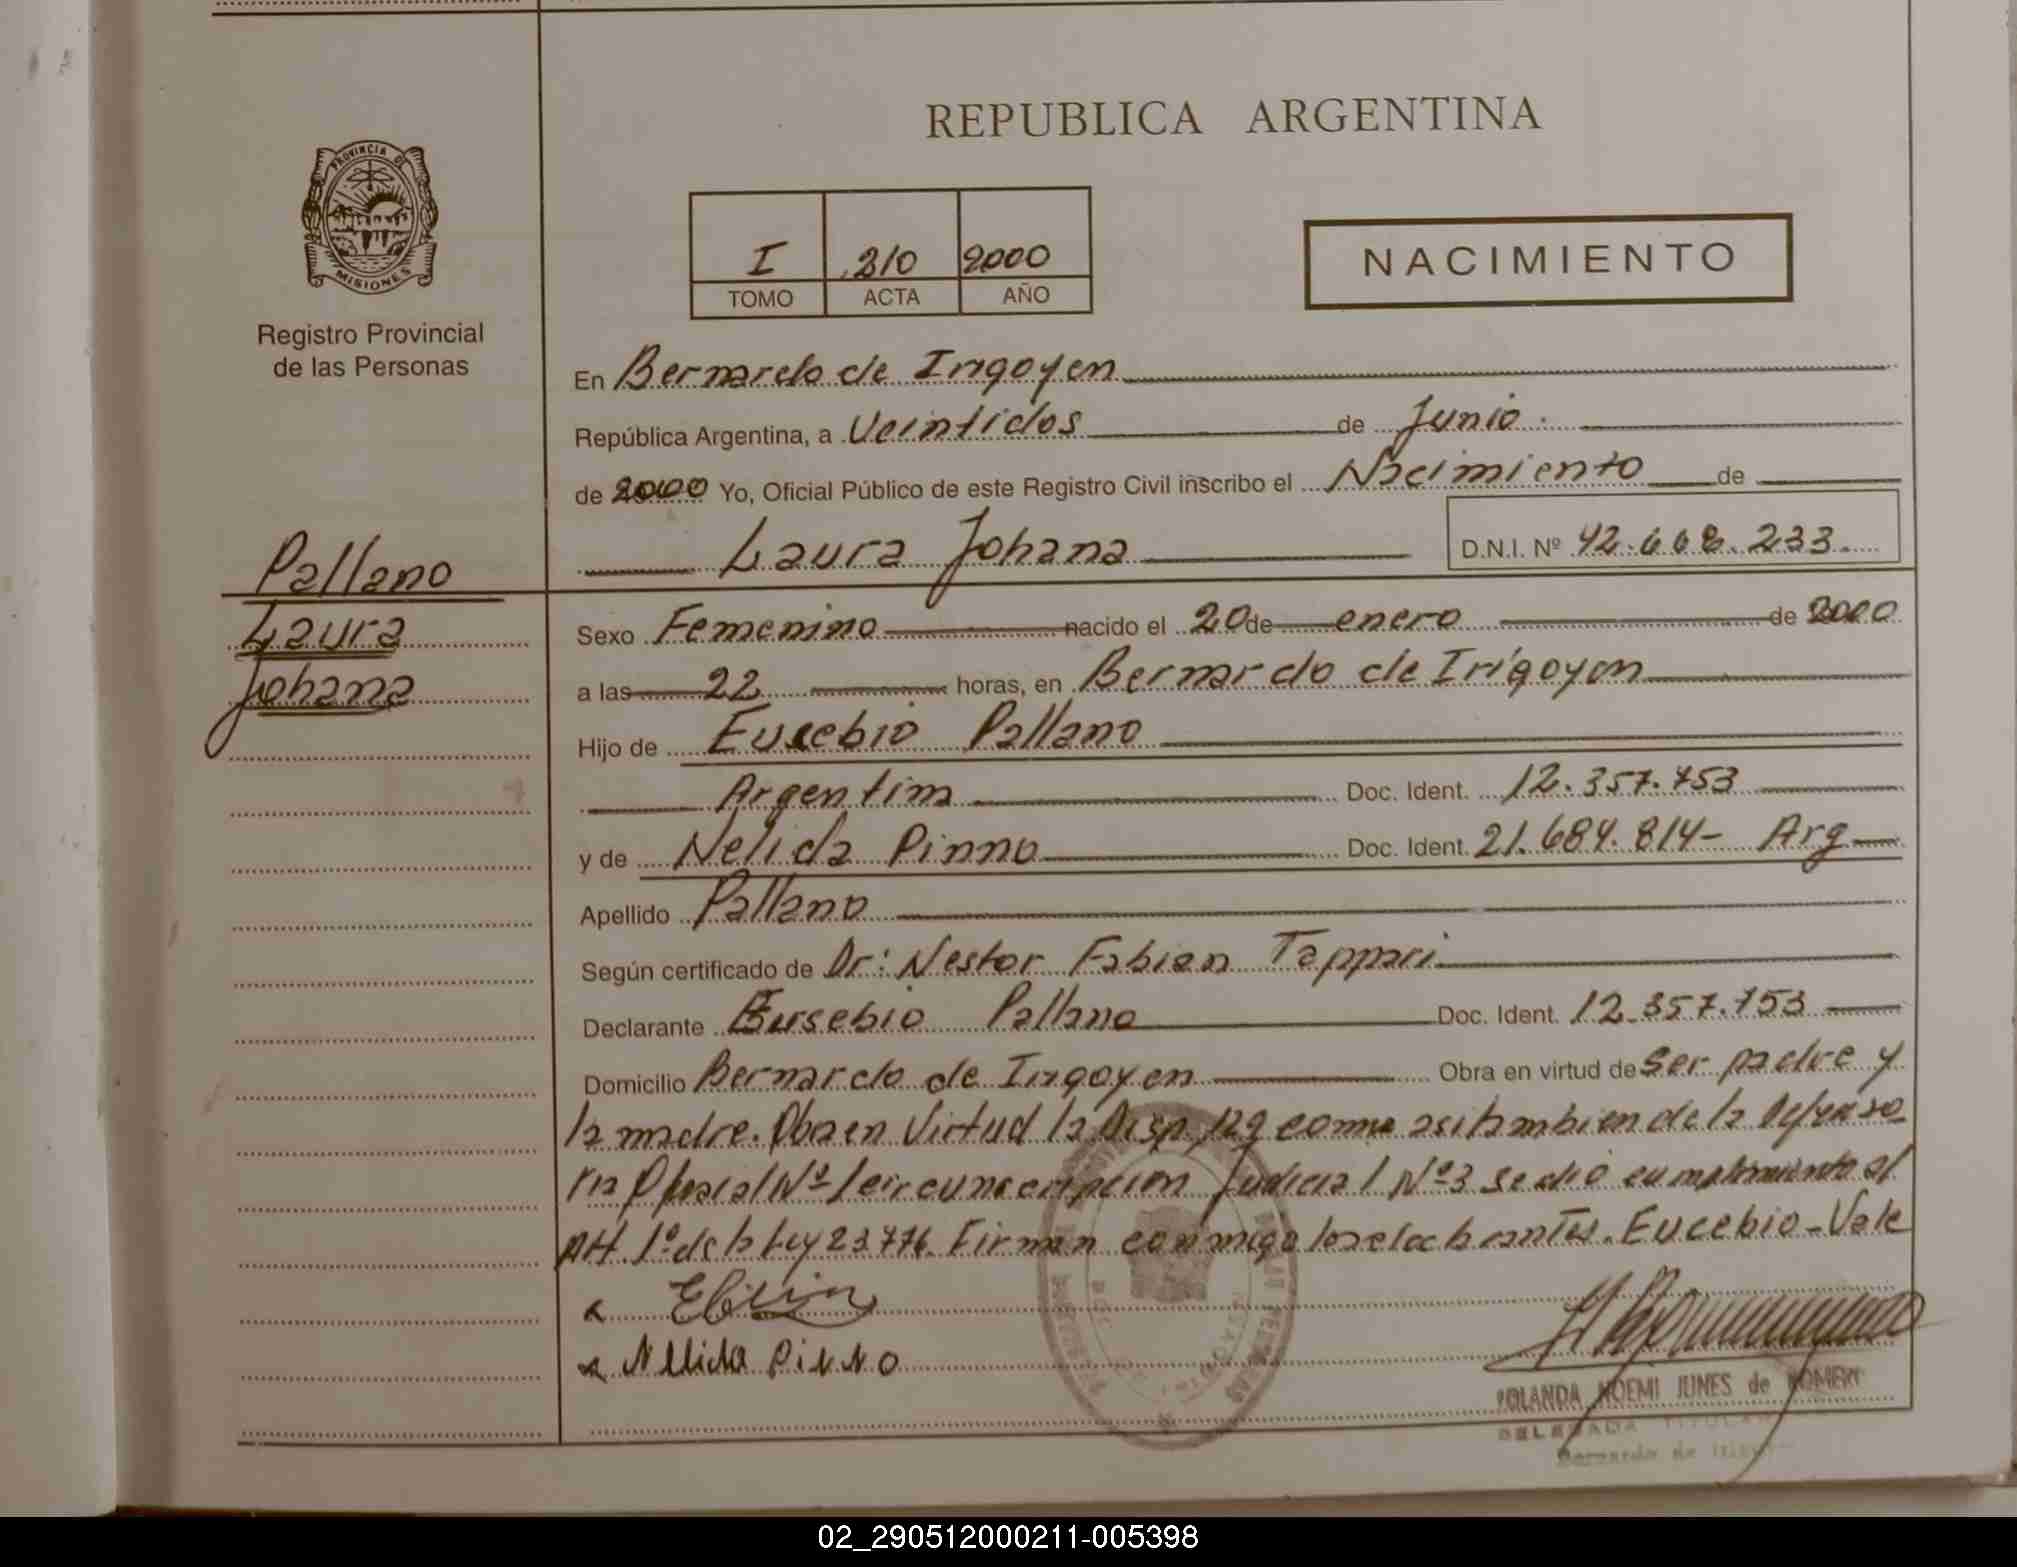 REPUBLICA ARGENTINA
PROVINCIA DE
MISIONES
Registro Provincial
de las Personas
I 210 2000
TOMO ACTA AÑO
NACIMIENTO
En Bernardo de Irigoyen
República Argentina, a Veintidos de Junio.
de 2000 Yo, Oficial Público de este Registro Civil inscribo el Nacimiento de
Laura Johana D.N.I. Nº 42.668.233.
Pallano
Laura
Johana
Sexo Femenino nacido el 20 de enero de 2000
a las 22 horas, en Bernardo de Irigoyen
Hijo de Eucebio Pallano
Argentina Doc. Ident. 12.357.753
y de Nelida Pinno Doc. Ident. 21.684.814- Arg
Apellido Pallano
Según certificado de Dr: Nestor Fabian Tappari
Declarante Eusebio Pallano Doc. Ident. 12.357.753
Domicilio Bernardo de Irigoyen Obra en virtud de ser padre y
la madre. Obra en Virtud la Disp. 129 como asi tambien de la Defenso
ria Oficial Nº 1 circunscripcion Judicial Nº 3 se dio cumplimiento al
Art. 1º de la Ley 23.776. Firman conmigo los declarantes. Eucebio - Vale
Nelida Pinno
YOLANDA NOEMI JUNES de
DELEGADA TITULAR
Bernardo de Irigoyen
02_290512000211-005398